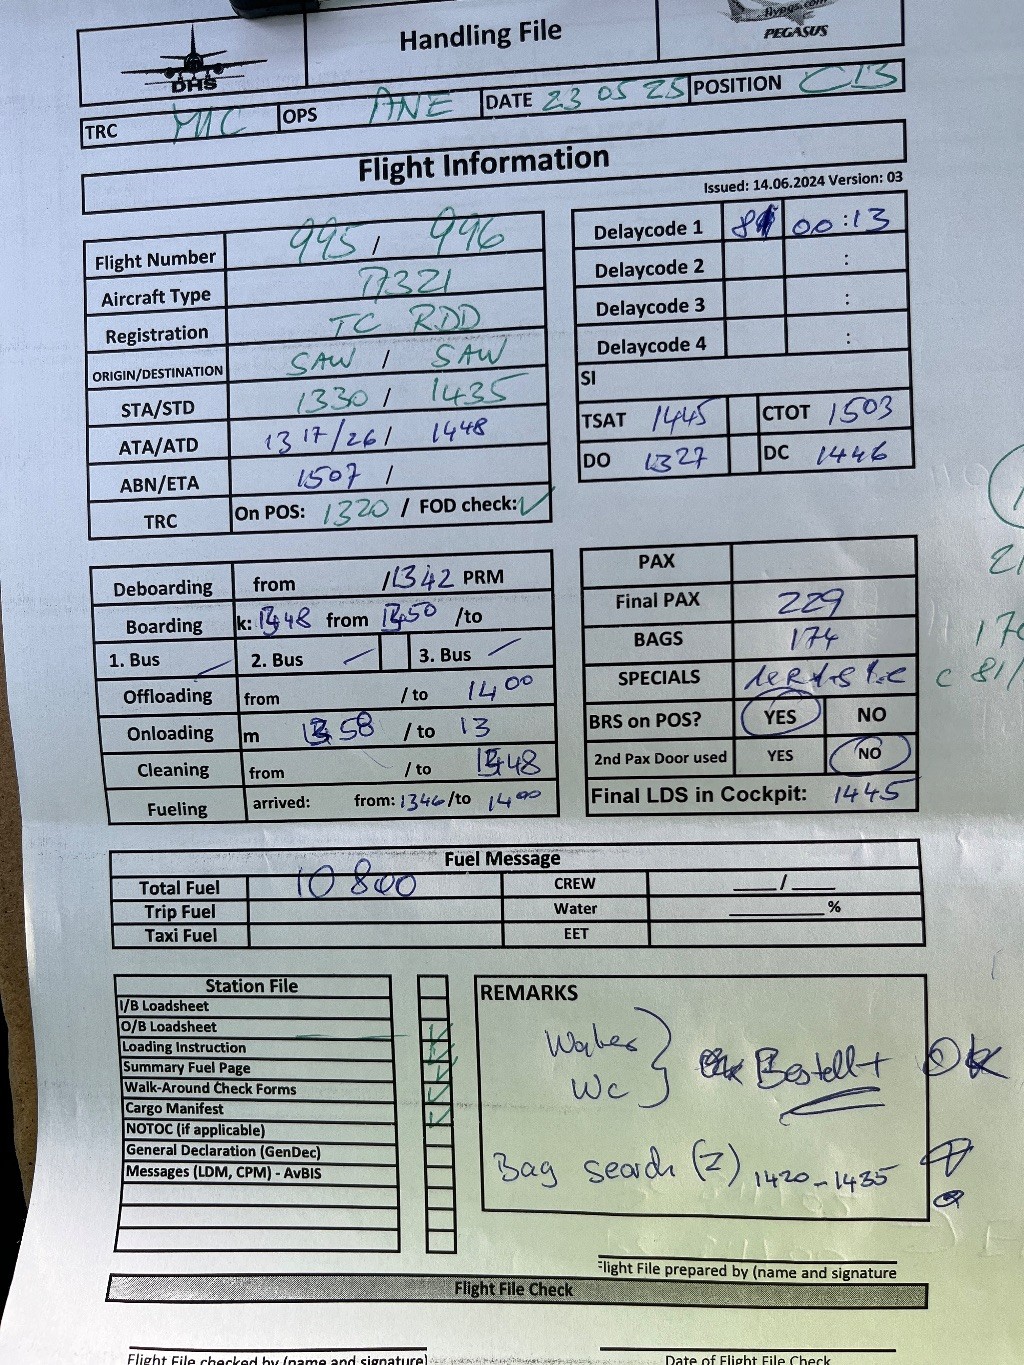 DHS
Handling File
flypgs.com
PEGASUS
TRC MIC OPS ANE DATE 23 05 25 POSITION C13
Flight Information
Issued: 14.06.2024 Version: 03
Flight Number 995 / 996
Aircraft Type 321
Registration TC RDD
ORIGIN/DESTINATION SAW / SAW
STA/STD 1330 / 1435
ATA/ATD 1317/26/ 1448
ABN/ETA 1507 /
TRC On POS: 1320 / FOD check: ✓
Delaycode 1 00:13
Delaycode 2 :
Delaycode 3 :
Delaycode 4 :
SI
TSAT 1445 CTOT 1503
DO 1327 DC 1446
Deboarding from /1342 PRM
Boarding k: 48 from 50 /to
1. Bus 2. Bus 3. Bus
Offloading from / to 1400
Onloading m 58 / to 13
Cleaning from / to 48
Fueling arrived: from: 1346/to 1400
PAX
Final PAX 229
BAGS 174
SPECIALS
BRS on POS? YES NO
2nd Pax Door used YES NO
Final LDS in Cockpit: 1445
Fuel Message
Total Fuel 10800 CREW ____/____
Trip Fuel Water ________%
Taxi Fuel EET
Station File
I/B Loadsheet
O/B Loadsheet
Loading Instruction
Summary Fuel Page
Walk-Around Check Forms
Cargo Manifest
NOTOC (if applicable)
General Declaration (GenDec)
Messages (LDM, CPM) - AvBIS
REMARKS
Water
WC } Bestellt OK
Bag search (2) 1420-1435
Flight File prepared by (name and signature
Flight File Check
Flight File checked by (name and signature)
Date of Flight File Check